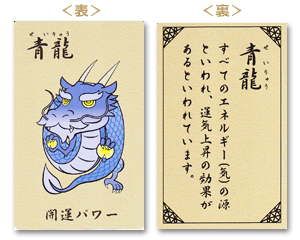 ＜表＞
せいりゅう
青龍
開運パワー
＜裏＞
せいりゅう
青龍
すべてのエネルギー(気)の源
といわれ、運気上昇の効果が
あるといわれています。